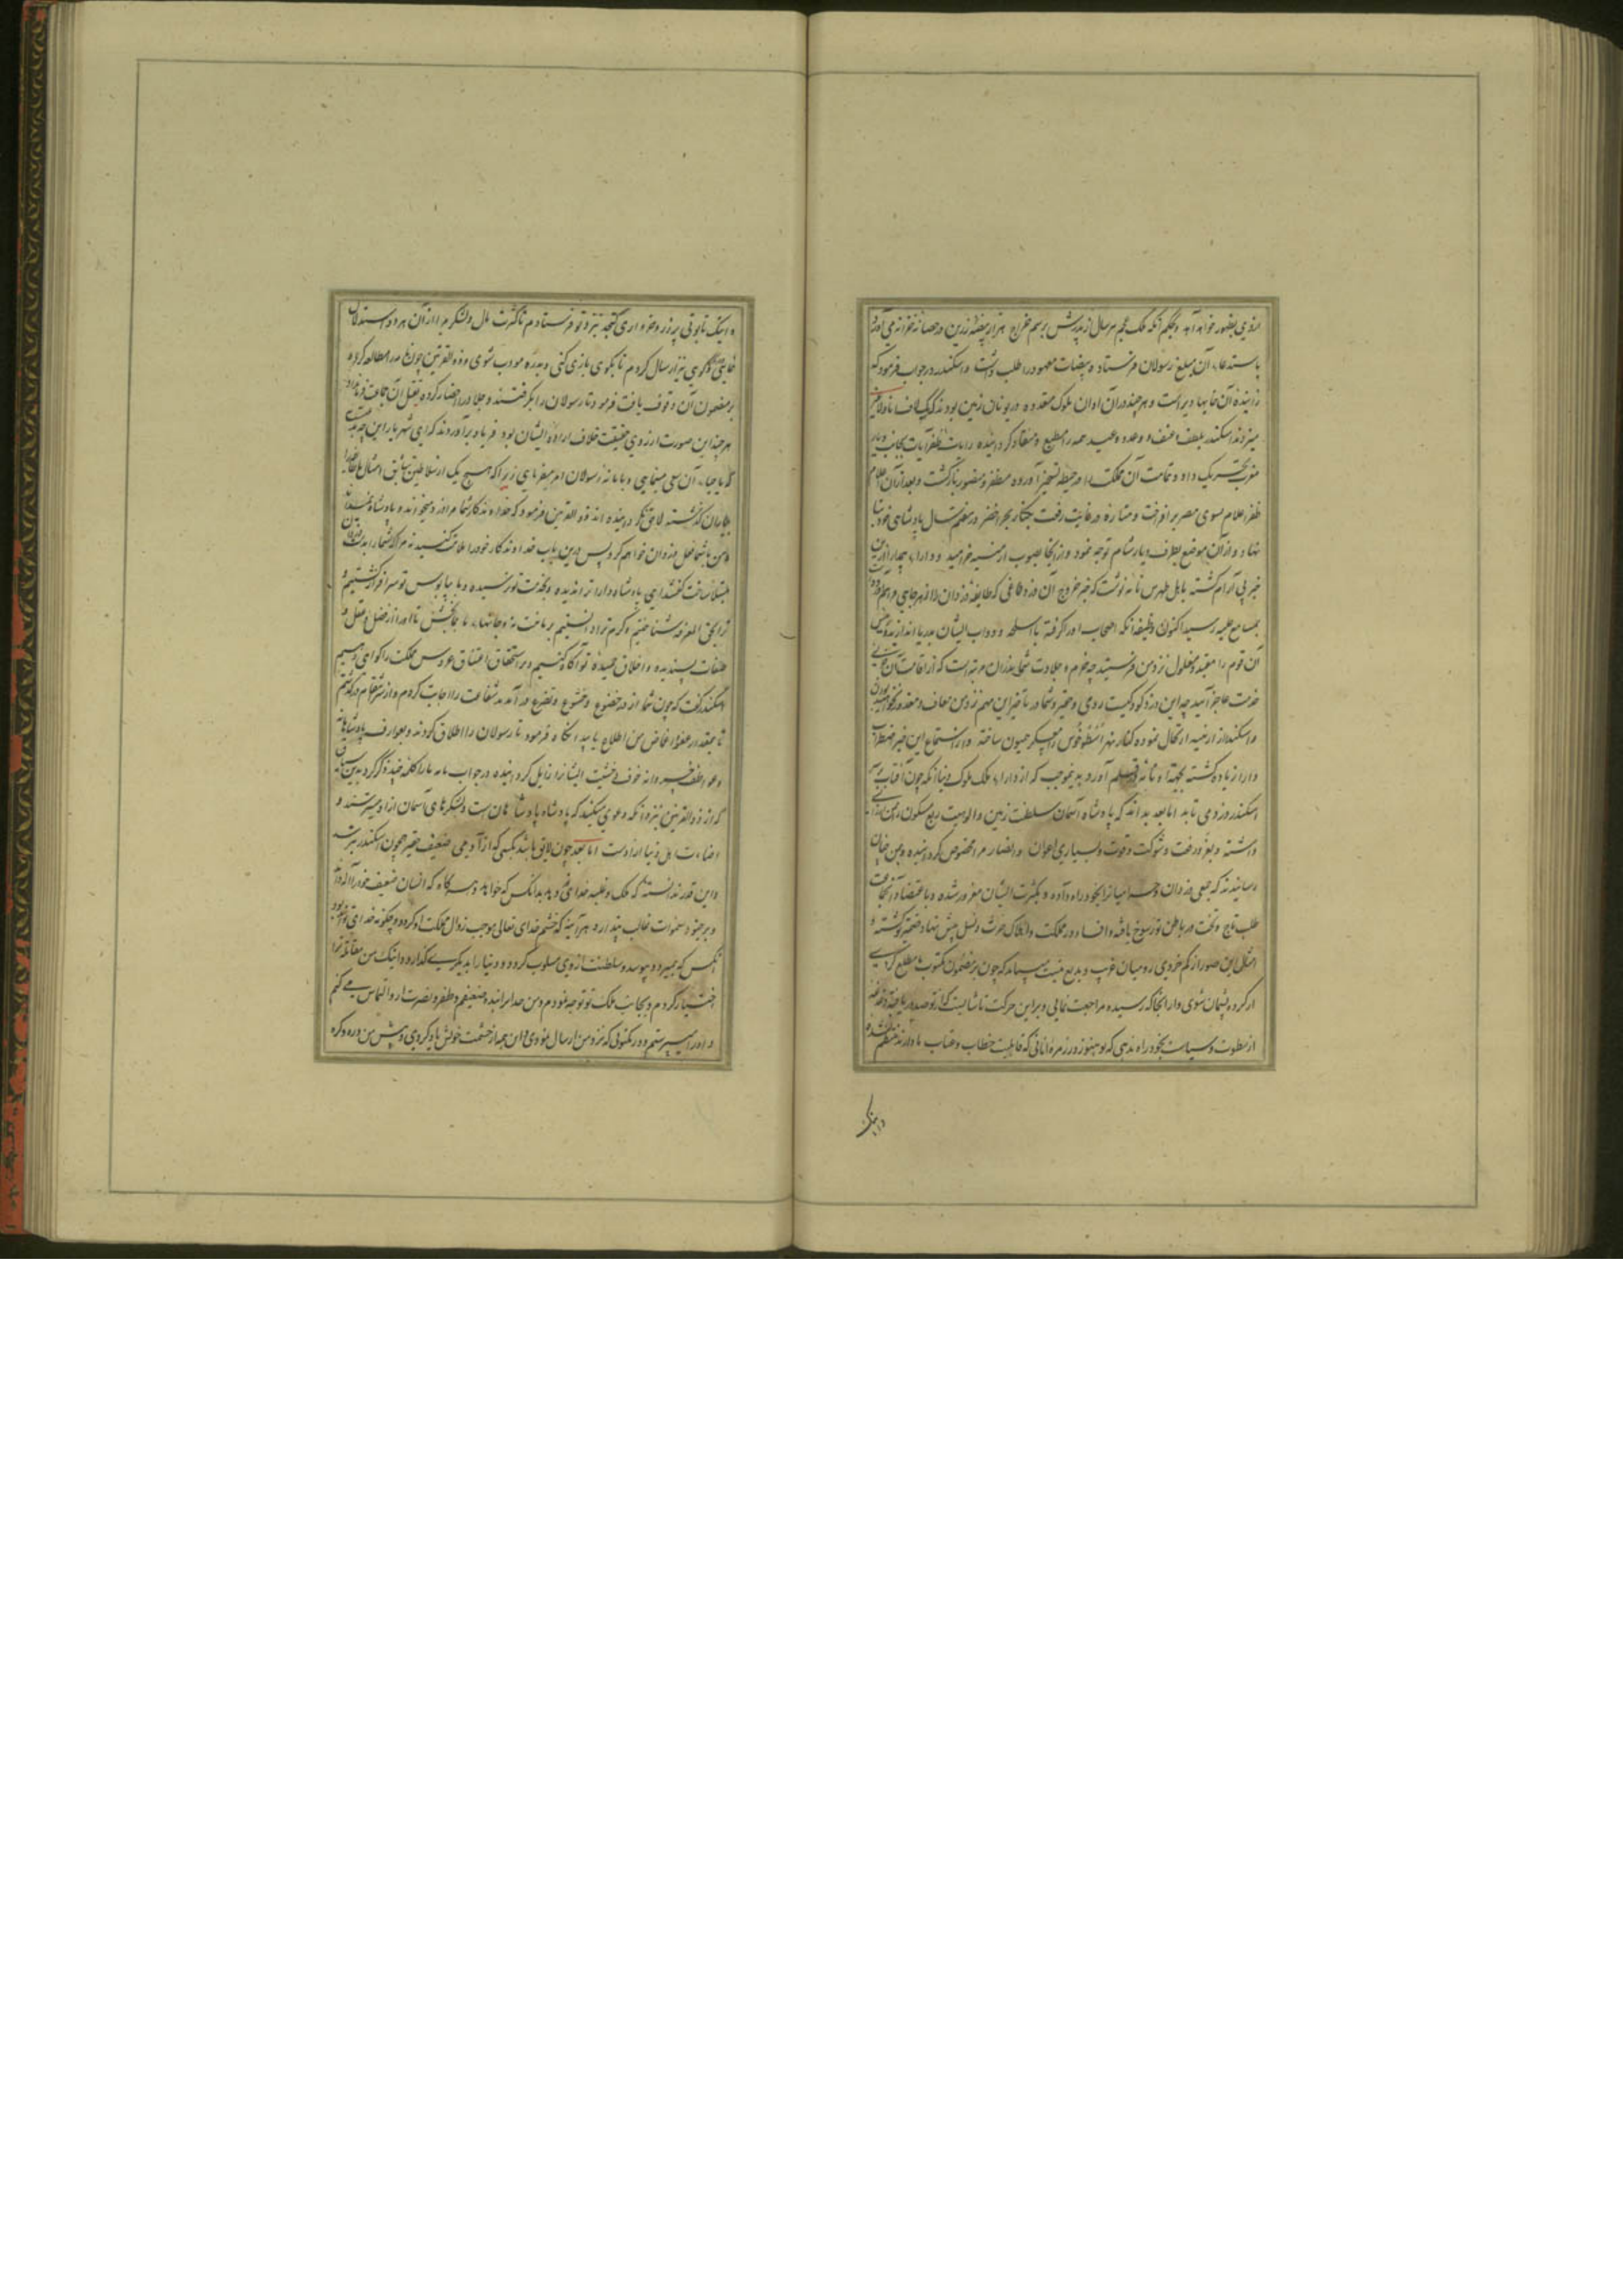 ازوی بظهور خواهد آمد و بحکم آنکه ملک عجم هر سال از پدرش برسم خراج هزار بیضه زرین در خزانه می آورند
باستدعاء آن مبلغ رسولان فرستاد و بیضات معهود را طلب داشت و اسکندر در جواب فرمود که
زاینده آن خایها و هر چند در آن اوان ملوک متعدده در یونان زمین بودند که
میزدند اسکندر بلطف و عنف و وعده و وعید همه را مطیع و منقاد کردانیده رایات ظفر آیات بجانب دیار
مغرب تحریک داد و تمامت آن مملکت را در حیطه تسخیر آورده مظفر و منصور بازگشت و بعد از آن اعلام
ظفر اعلام بسوی مصر برافراخت و مناره در غایت رفعت بر کنار بحر اخضر
نهاد و از آن موضع بطرف دیار شام توجه نمود و از آنجا بصوب ارمنیه خرامید و دارا
خبر بی آرام گشته باهل طرس نامه نوشت که خبر خروج آن دزد طاغی که طایفه دزدان را از هر جایی فراهم آورده
بمسامع علیه رسید اکنون وظیفه آنکه اصحاب او را گرفته با اسلحه و دواب ایشان بدریا اندازند و رئیس
آن قوم را مقید و مغلول نزد من فرستید چه حزم و جلادت شما بدان مرتبه است که از
خدمت عاجز آیید چه این دزد کودکیست رومی و حقیر و شما در تأخیر این مهم نزد من معاف و معذور نخواهید بود
و اسکندر از ارمنیه ارتحال نموده کنار نهر اسطوخوس را معسکر همیون ساخته و از استماع این خبر اضطراب
دارا زیاده گشته بجهة او نامه در قلم آورد بدین موجب که از دارا ملک ملوک دنیا آنکه چون آفتاب بر
اسکندر دزد می تابد اما بعد بداند که پادشاه آسمان سلطنت زمین و الوهیت ربع مسکون
داشته و بعز و رفعت و شوکت و قوت و بسیاری اعوان و انصار مرا مخصوص کردانیده و بمن چنان
رسانیدند که جمعی دزدان و حرامیان را بخود راه داده و بکثرت ایشان مغرور شده و باعتضاد آن جماعت
طلب تاج و تخت در باطن تو رسوخ یافته و افساد در مملکت و اهلاک حرث و نسل پیش نهاد ضمیر تو گشته و
امثال این صور از کم خردی رومیان غریب و بدیع نیست میباید که چون بر مضمون مکتوب مطلع گردی از
از کرده پشیمان شوی و از آنجا که رسیده مراجعت نمایی و بر این حرکت ناشایست که از تو صدور یافته
از سطوت و سیاست بخود راه ندهی که تو هنوز در زمره آنانی که قابلیت خطاب و عتاب ما دارند منتظم نشده
و اینک
و اینک تابوتی پر زر و خرواری کنجد نزد تو فرستادم تا کثرت مال و لشکر مرا از آن هر دو استدلال
نمایی و گوی نیز ارسال کردم تا بگوی بازی کنی و بدره مودب شوی و ذو القرنین چون نامه دارا مطالعه کرده
بر مضمون آن وقوف یافت فرمود تا رسولان را بگرفتند و جلاد را احضار کرده بقتل آن جماعت فرمان داد
هر چند این صورت از روی حقیقت خلاف اراده ایشان بود فریاد برآوردند که ای شهریار این چه
آن سعی مینمایی و بامانه رسولان امر میفرمایی زیرا که هیچ یک از سلاطین سابق امثال
لاحق نگردانیده اند ذو القرنین فرمود که خداوندگار شما مرا دزد میخواند و پادشاه نمیداند
و من با شما فعل دزدان خواهم کرد پس درین باب خداوندگار خود را ملامت کنید نه مرا که شما را
مبتلا ساخت گفتند ای پادشاه دارا ترا ندیده و بخدمت تو نرسیده و ما
ترا بحق المعرفه شناختیم و کرم ترا دانستیم بر ما منت نه و جانهاء ما بما بخش تا دارا را از فضل و عقل و
صفات پسندیده و اخلاق حمیده تو آگاه کنیم و بر استحقاق اعتناق عروس مملکت را گواهی دهیم
اسکندر گفت که چون شما از در خضوع و خشوع و تضرع در آمدید شفاعت را اجابت کردم و از سر انتقام در گذشتم
تا بمقدار عفو و اغماض من اطلاع یابید آنگاه فرمود تا رسولان را اطلاق کردند و بعوارف پادشاهانه
و عواطف خسروانه خوف و خشیت ایشانرا زایل کردانیده در جواب نامه دارا کلمه چند ذکر کرد بدین سان
که از ذو القرنین نزد آنکه دعوی میکند که پادشاه پادشاهان است و لشکرهای آسمان از او میترسند و
اضاءت اهل دنیا ازاوست اما بعد چون لایق باشد بکسی که از آدمی ضعیف حقیر همچون اسکندر بترسد
و این قدر ندانسته که ملک و غلبه خدای عز و جل بدانکس که خواهد دهد و هر گاه که انسان ضعیف خود را اله داند
و بر جنود سموات غالب پندارد هر آینه که خشم خدای تعالی موجب زوال مملکت او گردد و چگونه خدای تواند بود
آنکس که بمیرد و بپوسد و سلطنت از وی مسلوب گردد و دنیا را بدیگری گذارد و اینک من مقاتله ترا
اختیار کردم و بجانب ملک تو توجه نمودم و من خدا را بنده ضعیفم و ظفر و نصرت از او التماس می کنم
و او را میپرستم و در مکتوبی که نزد من ارسال نمودی در آن همه از حشمت خویش یاد کردی و پیش من دره و گوی